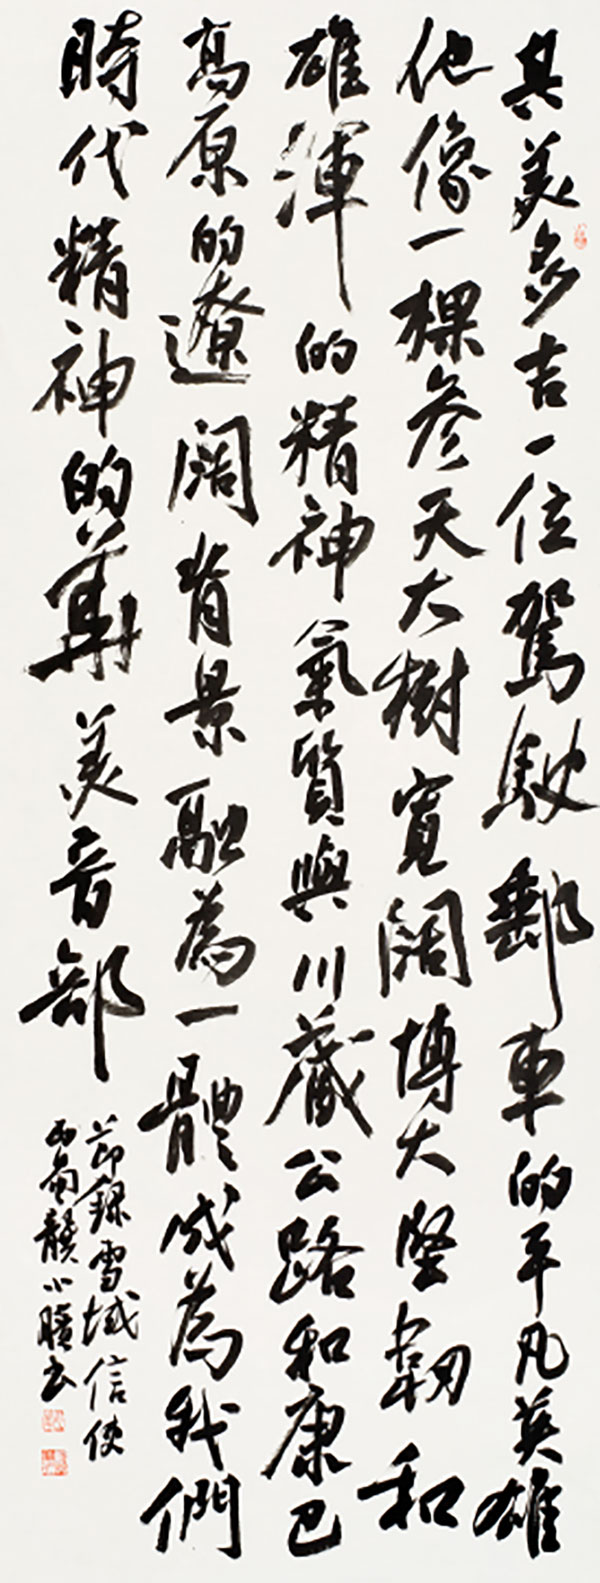 其美多吉一位駕駛郵車的平凡英雄
他像一棵参天大樹寬闊博大堅韌和
雄渾的精神氣質與川藏公路和康巴
高原的遼闊背景融為一體成為我們
時代精神的華美音部
節録雪域信使
西蜀龔小膑書